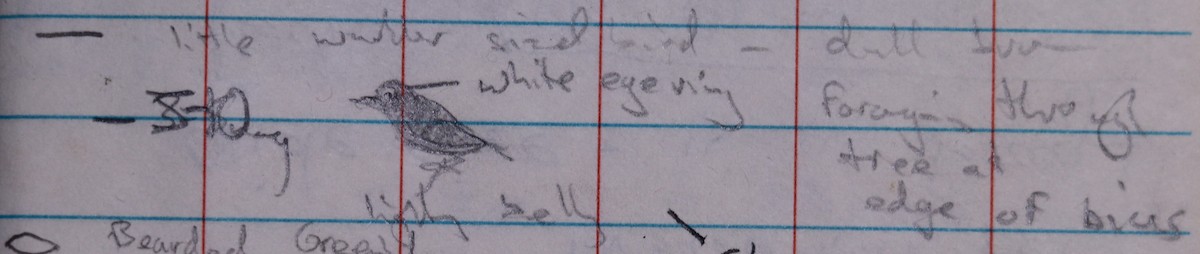 little warbler sized bird — dull
white eye ring
foraging through
tree at
edge of
belly
Bearded Green